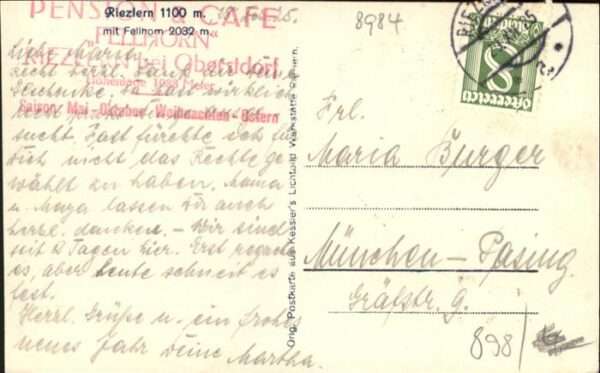 PENSION - CAFÉ
„FELLHORN“
RIEZLERN bei Oberstdorf
Höhenlage 1080 Meter
Saison: Mai - Oktober Weihnachten - Ostern
Riezlern 1100 m.
mit Fellhorn 2032 m.
Liebe
recht herzl. Dank für
wirklich
sucht. Fast fürchte ich für
Dich nicht das Rechte ge
wählt zu haben. Mama
u. lassen Dir auch
herzl. danken. - Wir sind
seit 2 Tagen hier. Erst regnet
es, aber heute schneit es
fest.
Herzl. Grüße u. ein frohes
neues Jahr Deine Martha.
Orig. Postkarte aus Kessler's Lichtbild Werkstätte Riezlern.
8984
8
Österreich
Frl.
Maria Burger
München - Pasing
Gräfstr. 9.
898/